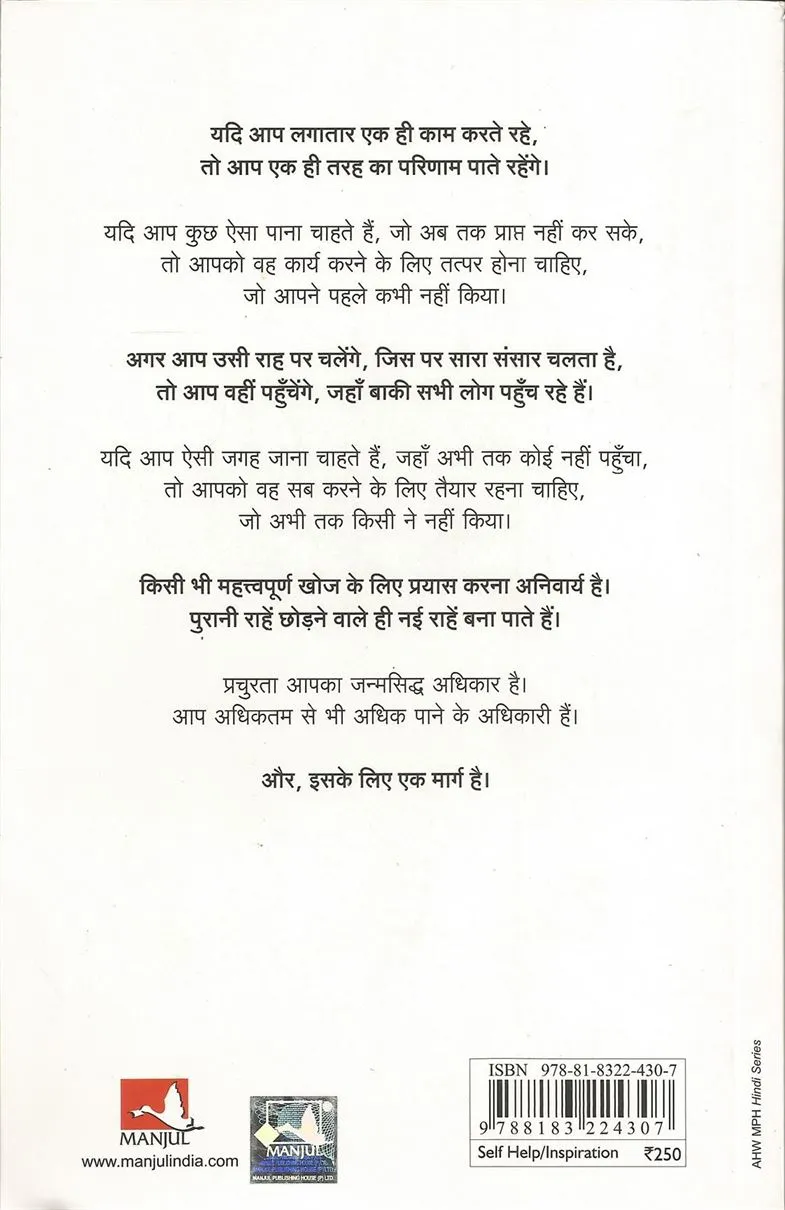 यदि आप लगातार एक ही काम करते रहे,
तो आप एक ही तरह का परिणाम पाते रहेंगे।
यदि आप कुछ ऐसा पाना चाहते हैं, जो अब तक प्राप्त नहीं कर सके,
तो आपको वह कार्य करने के लिए तत्पर होना चाहिए,
जो आपने पहले कभी नहीं किया।
अगर आप उसी राह पर चलेंगे, जिस पर सारा संसार चलता है,
तो आप वहीं पहुँचेंगे, जहाँ बाकी सभी लोग पहुँच रहे हैं।
यदि आप ऐसी जगह जाना चाहते हैं, जहाँ अभी तक कोई नहीं पहुँचा,
तो आपको वह सब करने के लिए तैयार रहना चाहिए,
जो अभी तक किसी ने नहीं किया।
किसी भी महत्त्वपूर्ण खोज के लिए प्रयास करना अनिवार्य है।
पुरानी राहें छोड़ने वाले ही नई राहें बना पाते हैं।
प्रचुरता आपका जन्मसिद्ध अधिकार है।
आप अधिकतम से भी अधिक पाने के अधिकारी हैं।
और, इसके लिए एक मार्ग है।
MANJUL
www.manjulindia.com
MANJUL
MANJUL PUBLISHING HOUSE (P) LTD.
ISBN 978-81-8322-430-7
9 788183 224307
Self Help/Inspiration ₹250
AHW MPH Hindi Series